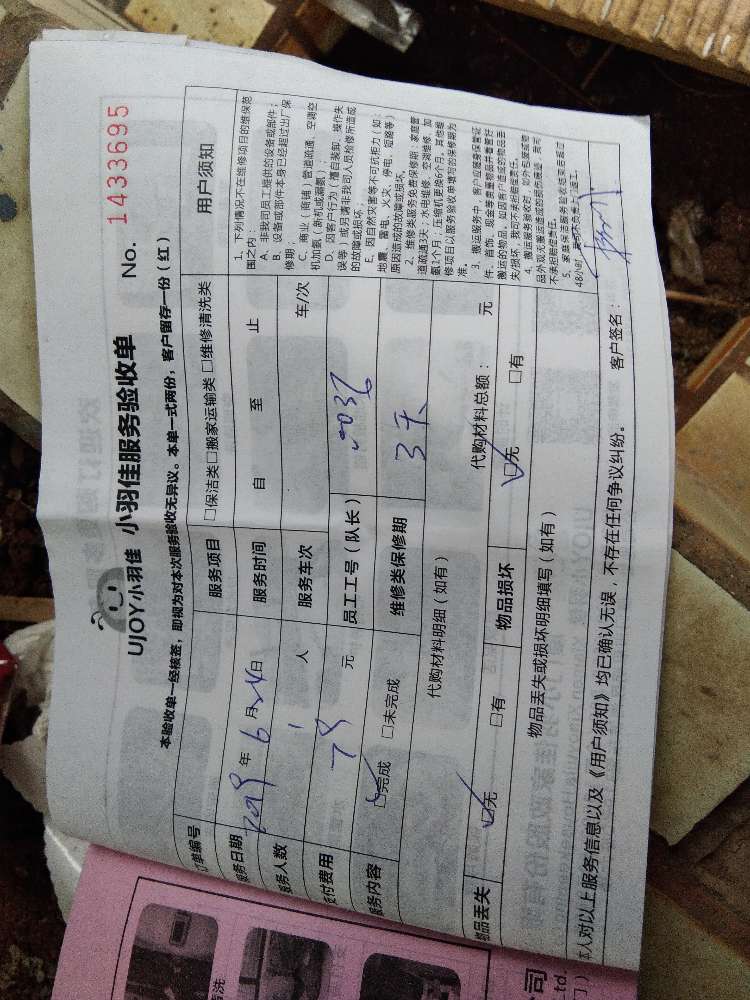 UJOY小羽佳 小羽佳服务验收单 No. 1433695
本验收单一经核签，即视为对本次服务验收无异议。本单一式两份，客户留存一份（红）
订单编号 服务项目 □保洁类□搬家运输类 □维修清洗类
服务日期 年 6 月 24 日 服务时间 自 至 止
服务人数 1 人 服务车次 车/次
应付费用 元 员工工号（队长）
服务内容 ☑完成 □未完成 维修类保修期 3天
代购材料明细（如有） 代购材料总额： 元
物品丢失 ☑无 □有 物品损坏 ☑无 □有
物品丢失或损坏明细填写（如有）
本人对以上服务信息以及《用户须知》均已确认无误，不存在任何争议纠纷。 客户签名：
用户须知
1、下列情况不在维修项目的维保范
围之内
A、非我司员工提供的设备或部件；
B、设备或部件本身已经超过出厂保
修期；
C、商业（商铺）管道疏通、空调空
机加氨（新机或漏氨）；
D、因客户行为（擅自装卸、操作失
误等）或另请非我司人员检修所造成
的故障或损坏；
E、因自然灾害等不可抗拒力（如
地震、雷电、火灾、停电、短路等）
原因造成的故障或损坏。
2、维修类服务免费保修期：家庭管
道疏通3天；水电维修、空调维修、加
氨1个月；压缩机更换6个月，其他维
修项目以服务验收单填写的保修期为
准。
3、搬运服务中，客户应随身保管证
件、首饰、现金等贵重物品并看管好
搬运的物品，如因客户造成的物品丢
失/损坏，我司不承担赔偿责任。
4、搬运服务验收时，如外包装或物
品外观无搬运造成的损伤痕迹，我司
不承担赔偿责任。
5、家庭保洁服务验收结束后超过
48小时，
清洗
司
td.
门）